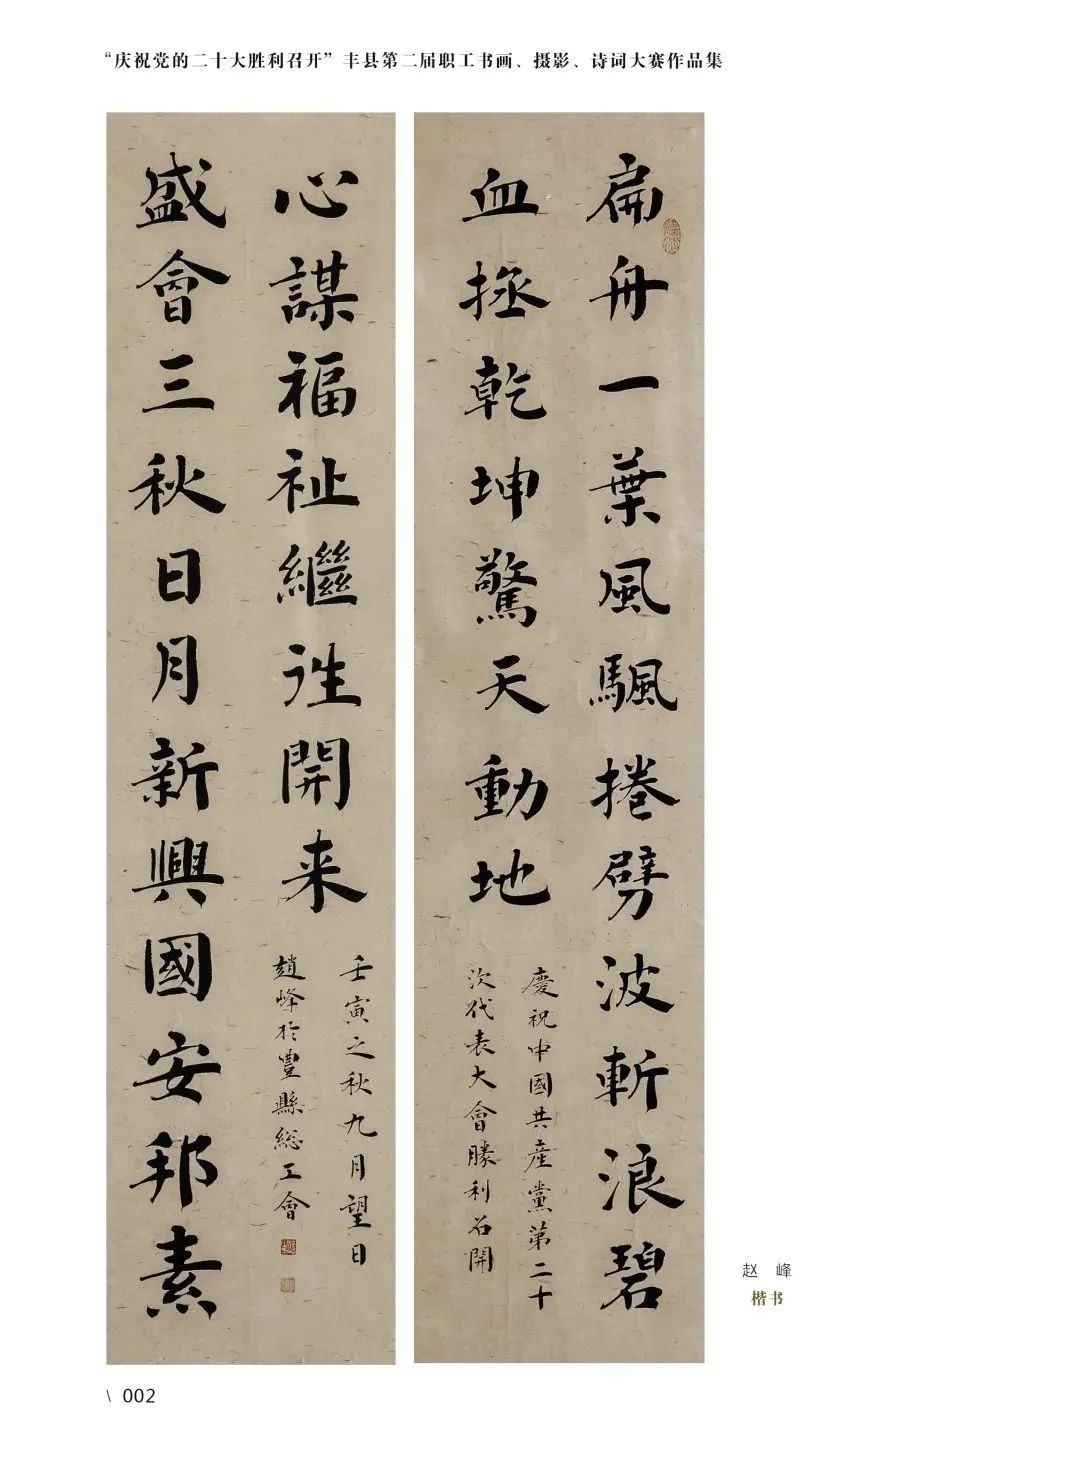 “庆祝党的二十大胜利召开”丰县第二届职工书画、摄影、诗词大赛作品集
扁舟一葉風颿捲劈波斬浪碧
血拯乾坤驚天動地
慶祝中國共產黨第二十
次代表大會勝利召開
盛會三秋日月新興國安邦素
心謀福祉繼往開来
壬寅之秋九月望日
趙峰於豐縣総工會
赵 峰
楷书
\ 002